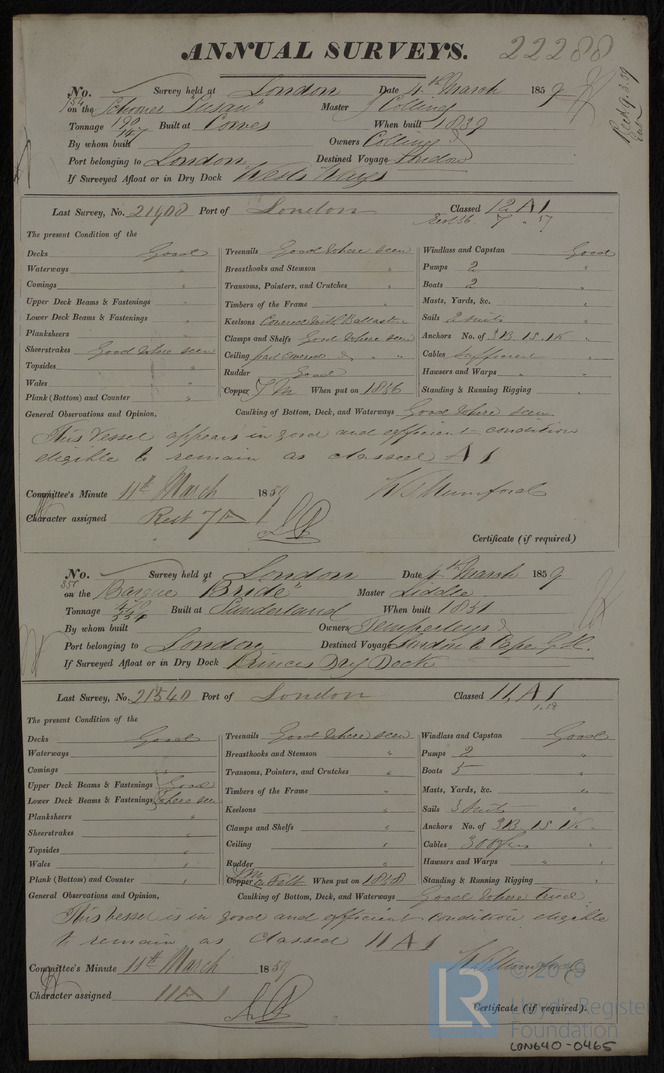 ANNUAL SURVEYS. 22288
No. 154 Survey held at London Date 4th March 1859
on the Schooner "Susan" Master J Colling
Tonnage Built at Cowes When built 1839
By whom built Owners Colling
Port belonging to London Destined Voyage London
If Surveyed Afloat or in Dry Dock Wells Ways
Last Survey, No. 21908 Port of London Classed 12 A1
The present Condition of the
Decks Good Treenails Good where seen Windlass and Capstan Good
Waterways " Breasthooks and Stemson " Pumps 2 "
Comings " Transoms, Pointers, and Crutches " Boats 2 "
Upper Deck Beams & Fastenings " Timbers of the Frame " Masts, Yards, &c. "
Lower Deck Beams & Fastenings " Keelsons Covered with Ballast Sails 2 suits "
Planksheers " Clamps and Shelfs Good where seen Anchors No. of 3B. 1S. 1K "
Sheerstrakes Good where seen Ceiling part covered Cables Sufficient "
Topsides " Rudder Good Hawsers and Warps "
Wales " Copper Y M When put on 1856 Standing & Running Rigging "
Plank (Bottom) and Counter "
General Observations and Opinion, Caulking of Bottom, Deck, and Waterways Good where seen
This Vessel appears in good and efficient condition
eligible to remain as classed A1
Committee's Minute 11th March 1859 Mumford
Character assigned Rest 7 A 1
Certificate (if required)
No. 351 Survey held at London Date 4th March 1859
on the Barque "Bride" Master Liddle
Tonnage Built at Sunderland When built 1851
By whom built Owners Temperleys
Port belonging to London Destined Voyage London to Cape G.H.
If Surveyed Afloat or in Dry Dock Princes Dry Dock
Last Survey, No. 21540 Port of London Classed 11, A1
The present Condition of the
Decks Good Treenails Good where seen Windlass and Capstan Good
Waterways " Breasthooks and Stemson " Pumps 2 "
Comings " Transoms, Pointers, and Crutches " Boats 5 "
Upper Deck Beams & Fastenings Good Timbers of the Frame " Masts, Yards, &c. "
Lower Deck Beams & Fastenings where seen Keelsons " Sails 3 Suits "
Planksheers " Clamps and Shelfs " Anchors No. of 3B. 1S. 1K.
Sheerstrakes " Ceiling " Cables 300 fms "
Topsides " Rudder " Hawsers and Warps "
Wales " Copper Ym on Felt When put on 1858 Standing & Running Rigging "
Plank (Bottom) and Counter "
General Observations and Opinion, Caulking of Bottom, Deck, and Waterways Good where tried
This vessel is in good and efficient condition eligible
to remain as Classed 11 A1
Committee's Minute 11th March 1859 Mumford
Character assigned 11 A 1
Certificate (if required).
LR © 2019
Lloyd's Register
Foundation
LON640-0465